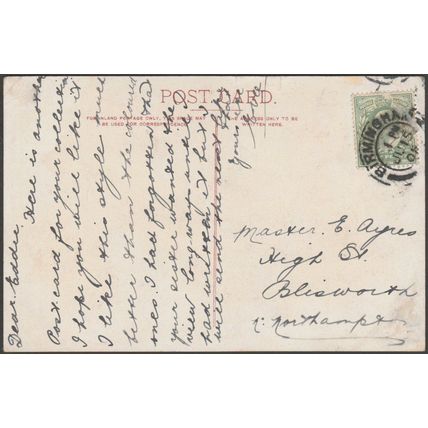 POST CARD.
FOR INLAND POSTAGE ONLY, THIS SPACE MAY
BE USED FOR CORRESPONDENCE.
THE ADDRESS ONLY TO BE
WRITTEN HERE.
BIRMINGHAM
Dear Eddie
Here is another
Post card for your collection
I hope you will like it
I like this style much
better than the coloured
ones. I had forgotten that
your sister wanted the
view long-way until I
had written it but
will send the next
Yours
Master E. Ayres
High St.
Blisworth
Nr. Northampton